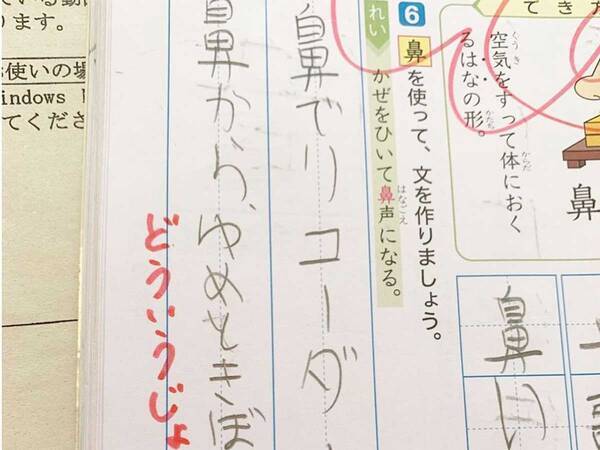 き
て
空気をすって体におく
くうき
からだ
るはなの形。
かたち
鼻
6
鼻を使って、文を作りましょう。
れい
かぜをひいて鼻声になる。
はなごえ
鼻でリコーダー
鼻から、ゆめときぼ
どういうじょ
鼻
い
ります。
使いの場
indows
てくださ